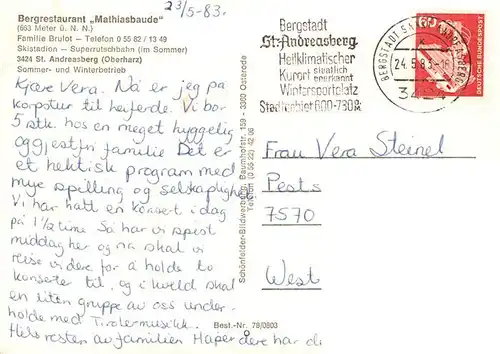 23/5-83.
Bergrestaurant „Mathiasbaude"
(663 Meter ü. N. N.)
Familie Brulot – Telefon 0 55 82 / 13 49
Skistadion – Superrutschbahn (im Sommer)
3424 St. Andreasberg (Oberharz)
Sommer- und Winterbetrieb
Kjære Vera. Nå er jeg på
korpstur til helferde. Vi bor
5 stk. hos en meget hyggelig
og gjestfri familie Det er
et hektisk program med
mye spilling og selskaplighet
Vi har hatt en konsert i dag
på 1 1/2 time Så har vi spist
middag her og nå skal vi
reise videre for å holde to
konserter til, og i kveld skal
en liten gruppe av oss under-
holde med Tirolermusikk.
Hils resten av familien Håper dere har d
Best.-Nr. 78/0803
Schönfelder-Bildwerbung, Baumhofstr. 159 - 3360 Osterode
Telefon (0 55 22)
Bergstadt
St. Andreasberg
Heilklimatischer
Kurort staatlich anerkannt
Wintersportplatz
Stadtgebiet 600-730m
BERGSTADT SANKT ANDREASBERG
24.5.83.-16
3424
60
DEUTSCHE BUNDESPOST
Frau Vera Steinel
Pests
7570
West